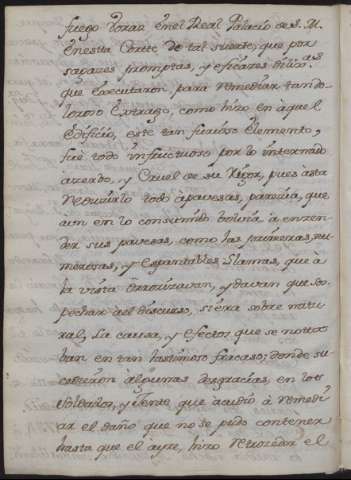 fuego voraz en el Real Palacio de S. M.
en esta Corte de tal suerte, que por
sagazes promptas, y eficazes dilix.as
que executaron, para remediar tan do-
loroso extrago, como hizo en aquel
edificio, este tan furioso elemento,
fue todo infructuoso por lo internado
ayrado, y cruel de su rigor, pues asta
reducirlo todo à pavesas, parecia, que
aun en lo consumido bolvia à enzen-
der sus pavesas, como las primeras, nu-
merosas, y espantables llamas, que à
la vista, y davan que sos-
pechar al discurso, si era sobre natu-
ral, la causa, y efectos, que se notta-
ban en tan lastimoso fracaso; donde su-
cedieron algunas desgracias, en los
soldados, y jente que acudio à remedi-
ar el daño que no se pudo contener
hasta que el ayre, hizo retroceder el